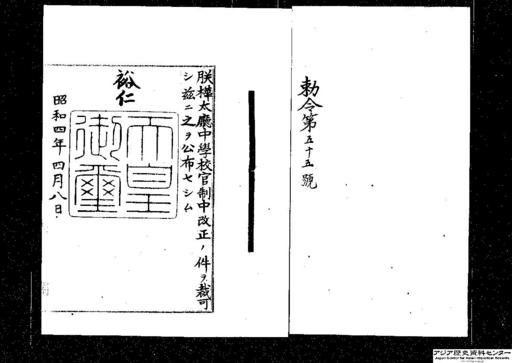 勅令第五十五號
朕樺太廳中學校官制中改正ノ件ヲ裁可
シ茲ニ之ヲ公布セシム
裕仁
天皇
御璽
昭和四年四月八日
アジア歴史資料センター
Japan Center for Asian Historical Records